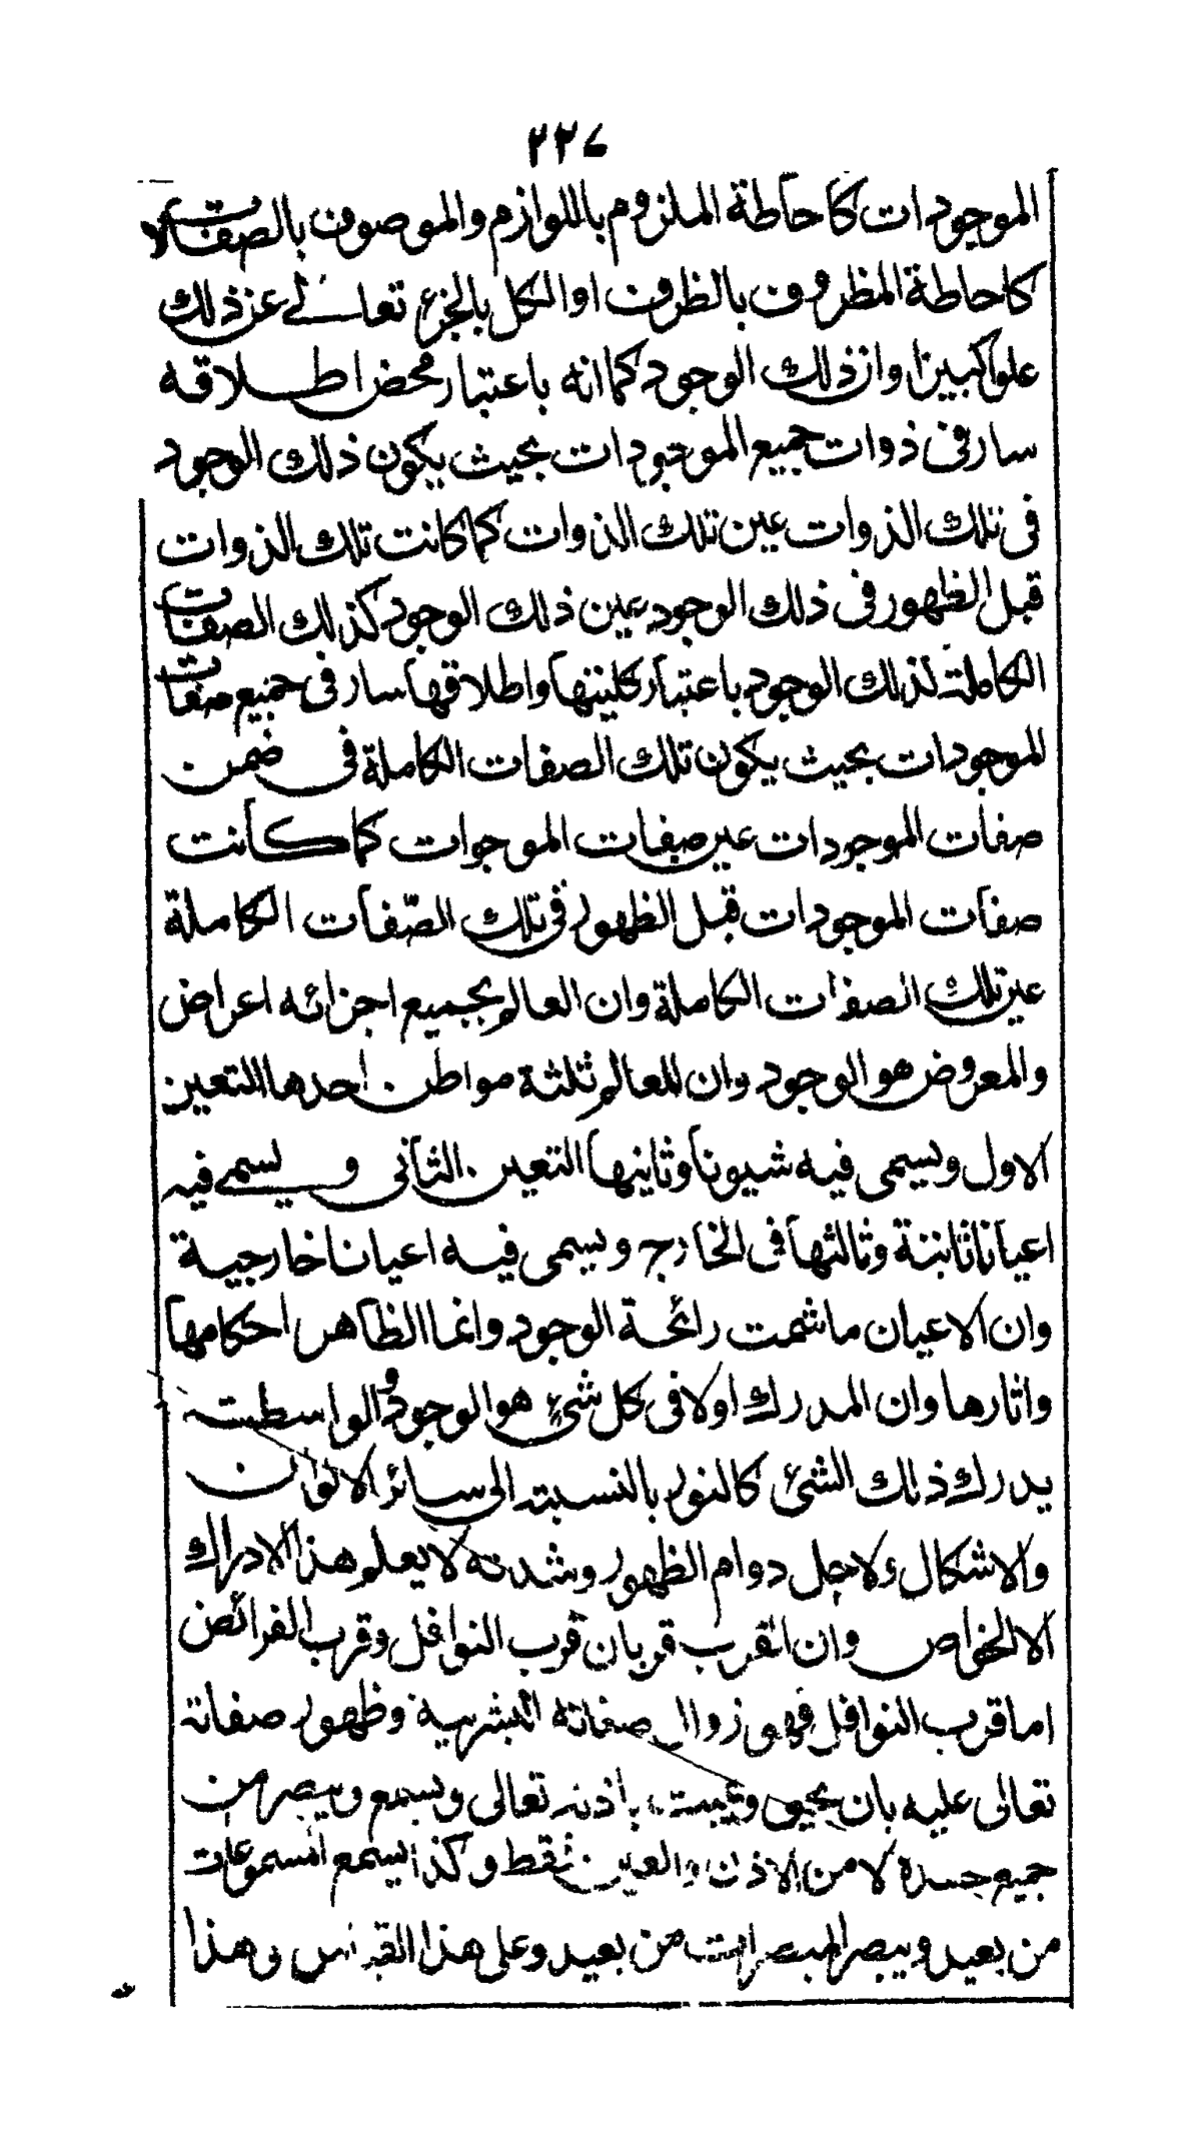 ٢٢٧
الموجودات كاحاطة الملزوم باللوازم والموصوف بالصفات لا
كاحاطة المظروف بالظرف او الكل بالجزء تعالى عن ذلك
علوا كبيرا وان ذلك الوجود كما انه باعتبار محض اطلاقه
سار فى ذوات جميع الموجودات بحيث يكون ذلك الوجود
فى تلك الذوات عين تلك الذوات كما كانت تلك الذوات
قبل الظهور فى ذلك الوجود عين ذلك الوجود كذلك الصفات
الكاملة لذلك الوجود باعتبار كليتها واطلاقها سار فى جميع صفات
الموجودات بحيث يكون تلك الصفات الكاملة فى ضمن
صفات الموجودات عين صفات الموجوات كما كانت
صفات الموجودات قبل الظهور فى تلك الصّفات الكاملة
عين تلك الصفات الكاملة وان العالم بجميع اجزائه اعراض
والمعروض هو الوجود وان للعالم ثلثة مواطن احدها التعين
الاول ويسمى فيه شيونا وثانيها التعين الثانى ويسمى فيه
اعيانا ثابتة وثالثها فى الخارج ويسمى فيه اعيانا خارجية
وان الاعيان ما شمت رائحة الوجود وانما الظاهر احكامها
واثارها وان المدرك اولا فى كل شئ هو الوجود و الواسطته
يدرك ذلك الشئ كالنور بالنسبته الى سائر الالوان
والاشكال ولاجل دوام الظهور وشدته لا يعلم هذا الادراك
الا الخواص وان القرب قربان قرب النوافل وقرب الفرائض
اما قرب النوافل فهو زوال صفاته البشرية وظهور صفاته
تعالى عليه بان يحيى ويميت باذنه تعالى ويسمع ويبصر من
جميع جسده لا من الاذن والعين فقط وكذا يسمع المسموعات
من بعيد ويبصر المبصرات من بعيد وعلى هذا القياس وهذا